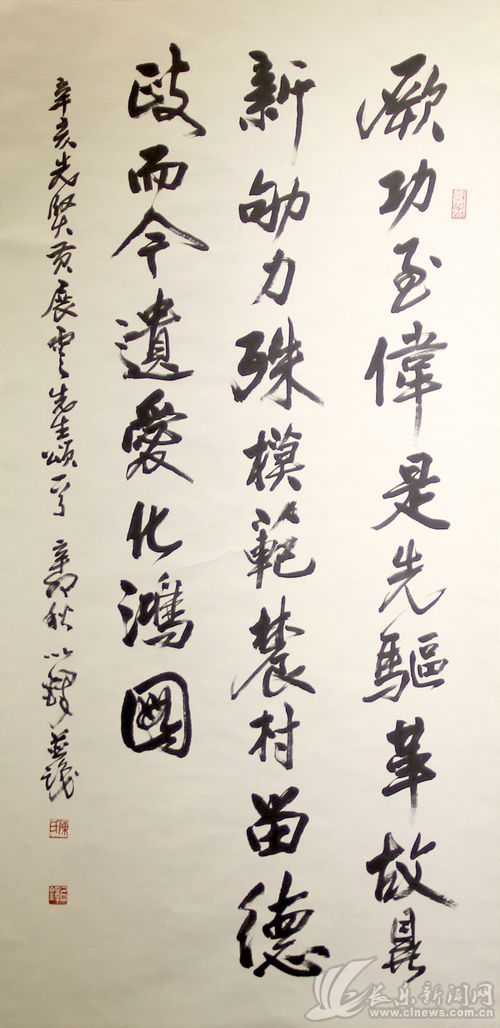 厥功至偉是先驅革故鼎
新劬力殊模範農村留德
政而今遺愛化鴻圖
辛亥先賢黃展雲先生頌 辛卯秋 並識
长乐新闻网
www.clnews.com.cn